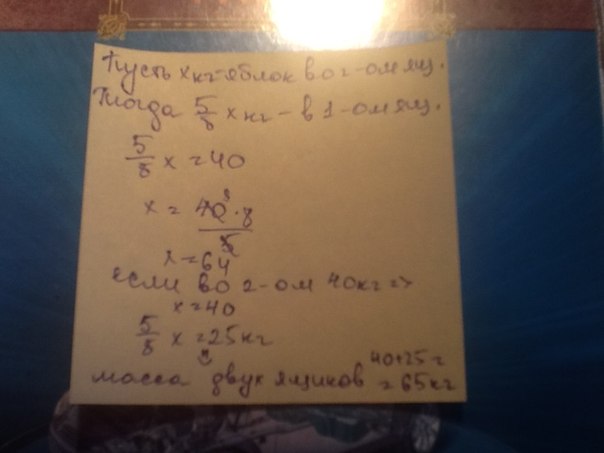 Пусть x кг-яблок во 2-ом ящ.
Тогда 5/8 x кг – в 1-ом ящ.
5/8 x = 40
x = 40 8 · 8 / 5
x = 64
если во 2-ом 40кг =>
x = 40
5/8 x = 25кг
масса двух ящиков 40+25 =
= 65кг